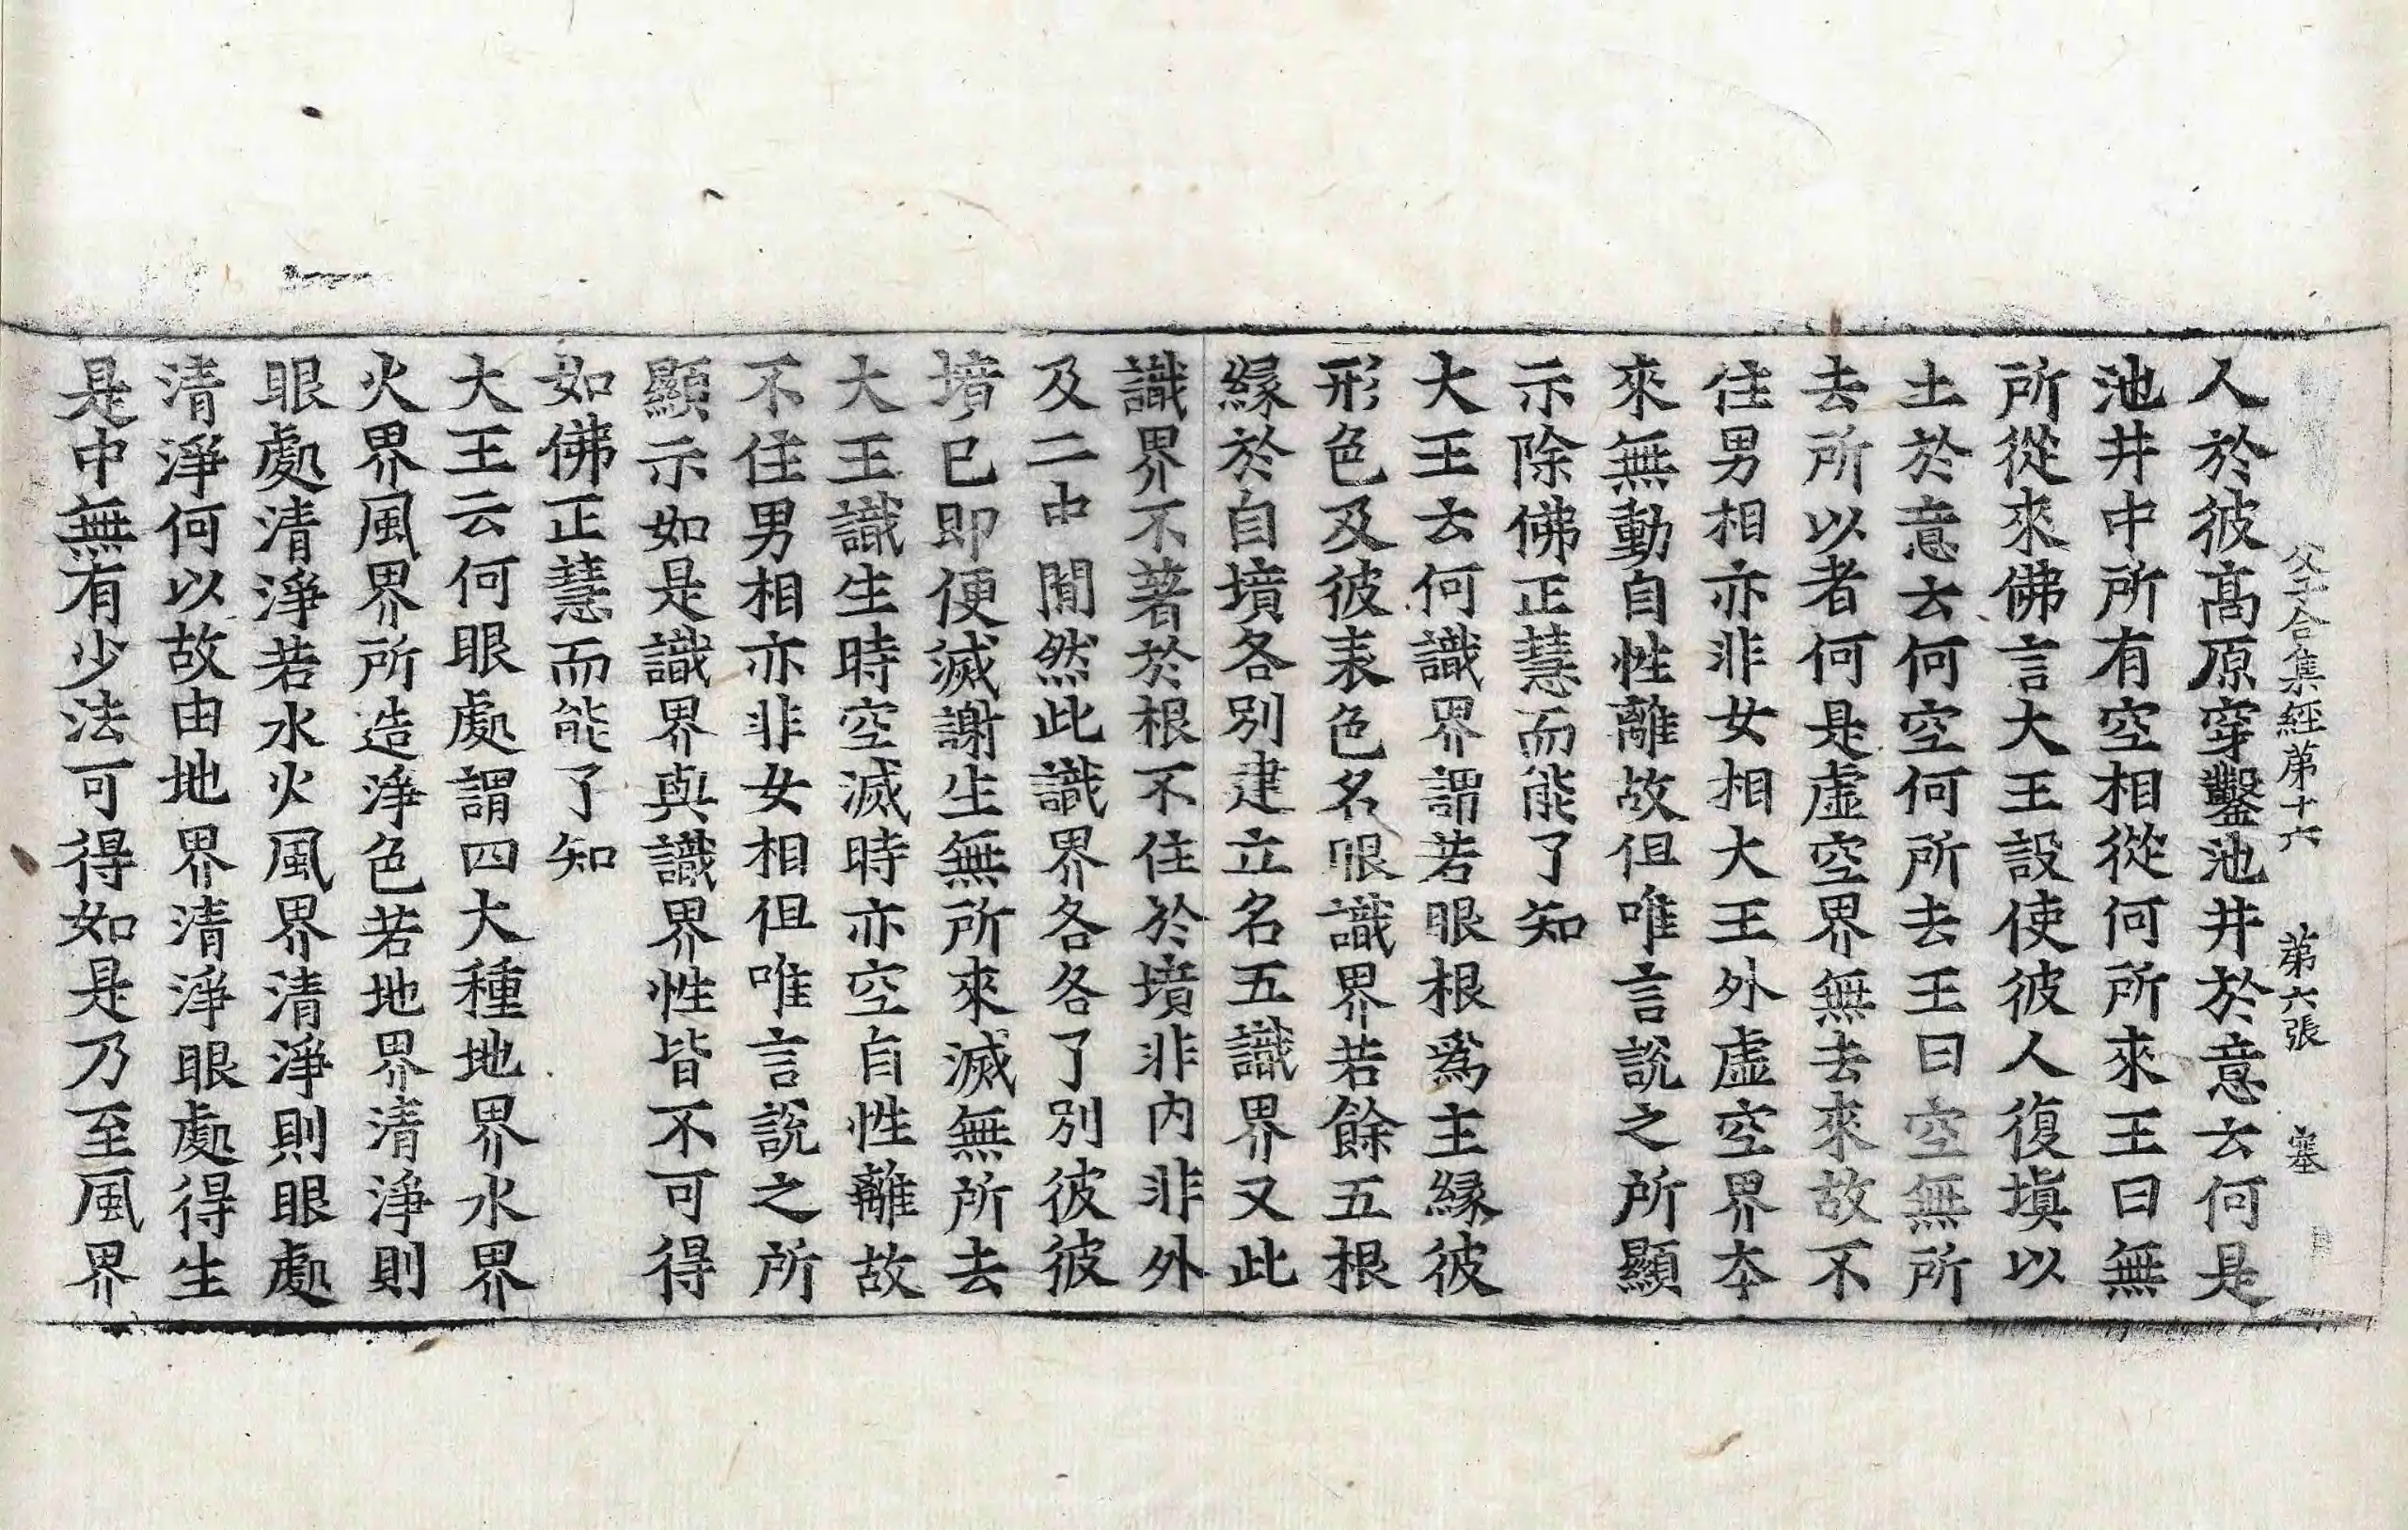 父子合集經第十六　第六張　塞
人於彼高原穿鑿池井於意云何是
池井中所有空相從何所來王曰無
所從來佛言大王設使彼人復塡以
土於意云何空何所去王曰空無所
去所以者何是虛空界無去來故不
住男相亦非女相大王外虛空界本
來無動自性離故但唯言說之所顯
示除佛正慧而能了知
大王云何識界謂若眼根爲主緣彼
形色及彼表色名眼識界若餘五根
緣於自境各別建立名五識界又此
識界不著於根不住於境非內非外
及二中間然此識界各各了別彼彼
境已即便滅謝生無所來滅無所去
大王識生時空滅時亦空自性離故
不住男相亦非女相但唯言說之所
顯示如是識界與識界性皆不可得
如佛正慧而能了知
大王云何眼處謂四大種地界水界
火界風界所造淨色若地界清淨則
眼處清淨若水火風界清淨則眼處
清淨何以故由地界清淨眼處得生
是中無有少法可得如是乃至風界